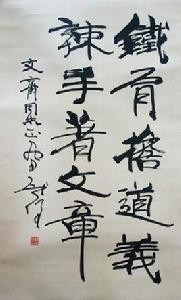 鐵肩擔道義
辣手著文章
文齊同志正